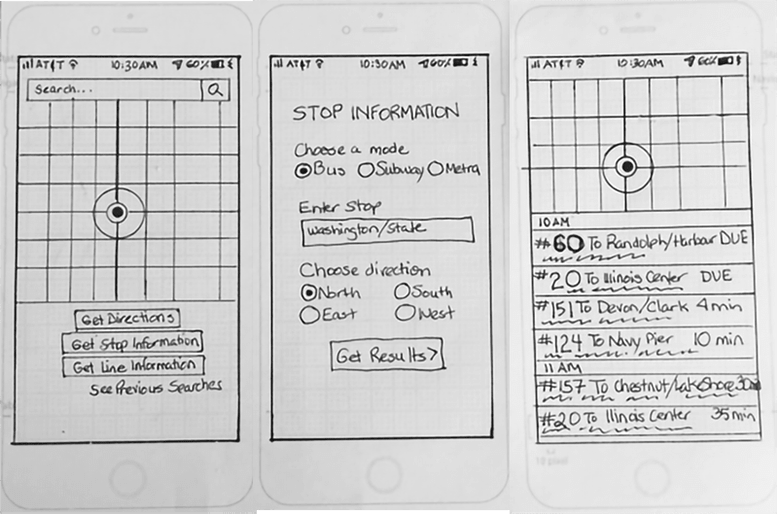 AT&T 10:30AM 60%
Search...
Get Directions
Get Stop Information
Get Line Information
See Previous Searches
AT&T 10:30AM 60%
STOP INFORMATION
Choose a mode
Bus Subway Metra
Enter Stop
Washington/State
Choose direction
North South
East West
Get Results>
AT&T 10:30AM 60%
10AM
#60 To Randolph/Harbour DUE
#20 To Illinois Center DUE
#151 To Devon/Clark 4 min
#124 To Navy Pier 10 min
11AM
#157 To Chestnut/LakeShore
#20 To Illinois Center 35 min